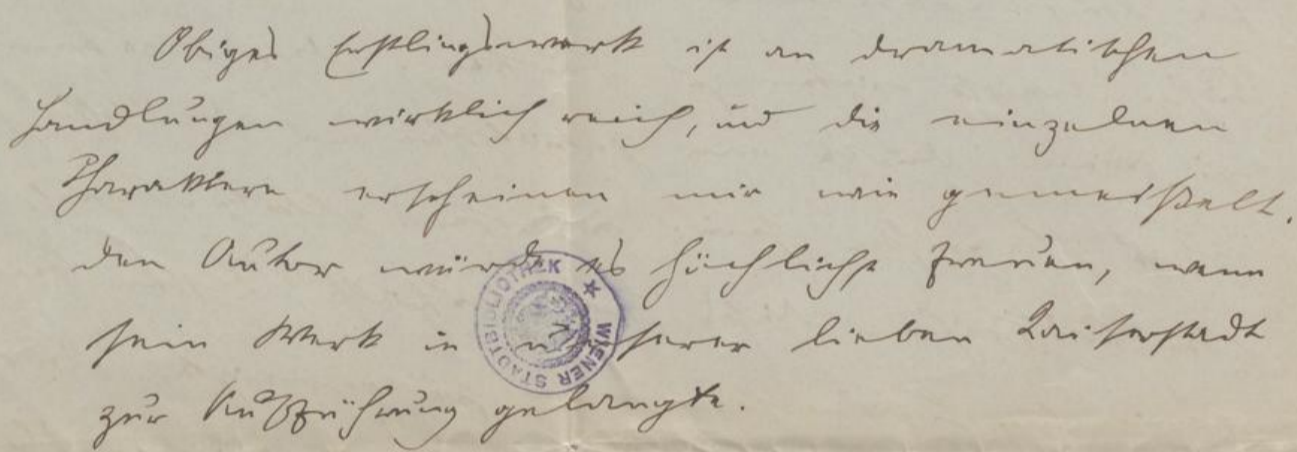 Obiges Erstlingswerk ist an dramatischen
Handlungen wirklich reich, und die einzelnen
Charaktere erscheinen mir wie gemeißelt.
Den Autor würde es höchlichst freuen, wenn
sein Werk in unserer lieben Kaiserstadt
zur Aufführung gelangte.
WIENER STADTBIBLIOTHEK